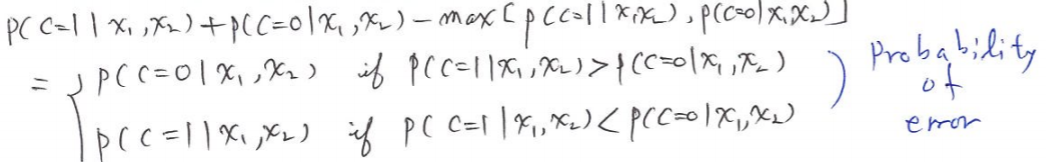 P( C=1 | x₁, x₂) + p(C=0 | x₁, x₂) − max [ p(C=1 | x₁x₂), p(C=0 | x₁x₂) ]
= { p(C=0 | x₁, x₂) if p(C=1 | x₁, x₂) > p(C=0 | x₁, x₂)
p(C=1 | x₁, x₂) if p( C=1 | x₁, x₂) < p(C=0 | x₁, x₂)
) Probability
of
error